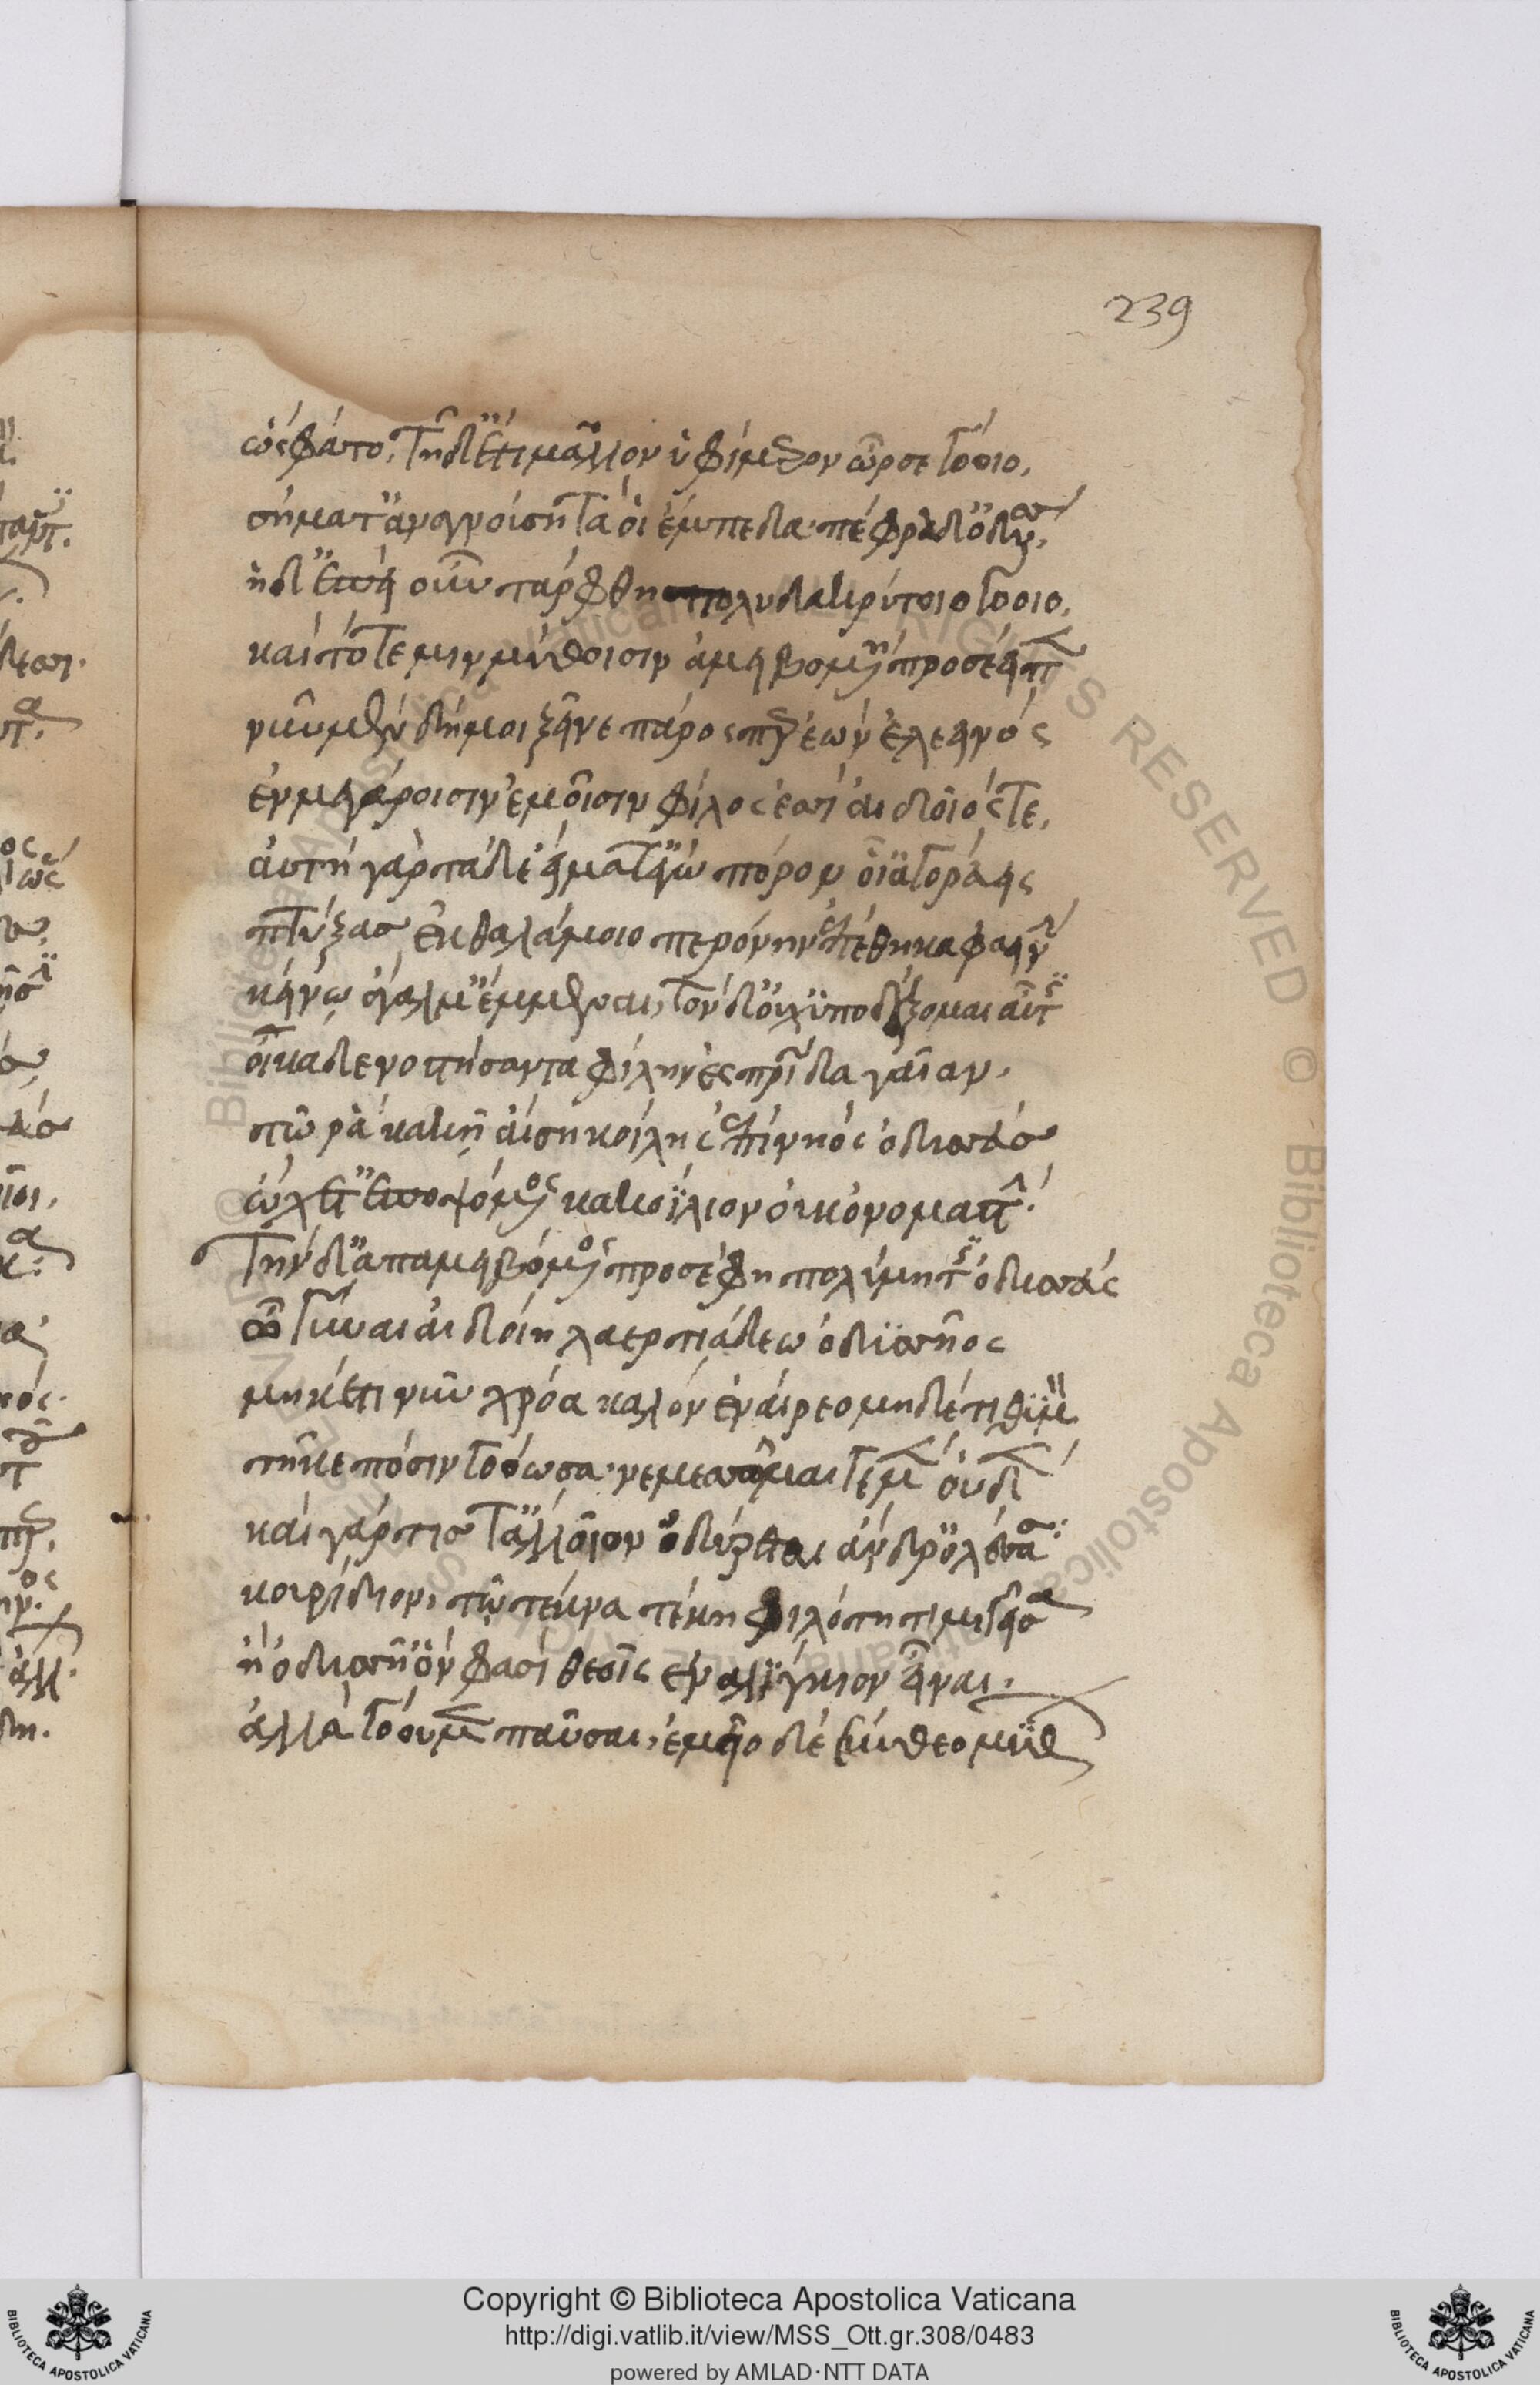 239
ὣς φάτο, τῆ δ' ἔτι μᾶλλον ὑφ' ἵμερον ὦρσε γόοιο,
σήματ' ἀναγνούση τά οἱ ἔμπεδα πέφραδ' ὀδυσ
ἡ δ' ἐπεὶ οὖν τάρφθη πολυδακρύτοιο γόοιο,
καὶ τότε μιν μύθοισιν ἀμειβομένη προσέειπ
νῦν μὲν δή μοι ξεῖνε πάρος περ ἐὼν ἐλεεινός
ἐν μεγάροισιν ἐμοῖσιν φίλος τ' ἔση αἰδοῖός τε,
αὐτὴ γὰρ τάδε εἵματ' ἐγὼ πόρον οἷ' ἀγοράεις
πτύξασ' ἐκ θαλάμοιο περόνην τ' ἐπέθηκα φαειν
κείνω ἄγαλμ' ἔμμεναι, τὸν δ' οὐχ ὑποδέξομαι αὖτις
οἴκαδε νοστήσαντα φίλην ἐς πατρίδα γαῖαν.
τῶ ῥα κακῆ αἴση κοίλης ἐπὶ νηὸς ὀδυσσεύσ
ὤχετ' ἐποψόμενος κακοΐλιον οὐκ ὀνομαστ
τὴν δ' ἀπαμειβόμενος προσέφη πολύμητις ὀδυσσεύς
ὦ γύναι αἰδοίη λαερτιάδεω ὀδυσῆος
μηκέτι νῦν χρόα καλὸν ἐναίρεο μηδέ τι θυμ
τῆκε πόσιν γοόωσα· νεμεσσῶμαι γε μὲν οὐδέν
καὶ γάρ τίσ τ' ἀλλοῖον ὀδύρεται ἄνδρ' ὀλέσασα
κουρίδιον, τῶ τέκνα τέκη φιλότητι μιγεῖσα
ἢ ὀδυσῆ' ὅν φασὶ θεοῖς ἐναλίγκιον εἶναι.
ἀλλὰ γόου μὲν παῦσαι, ἐμεῖο δὲ σύνθεο μῦθ
Copyright © Biblioteca Apostolica Vaticana
http://digi.vatlib.it/view/MSS_Ott.gr.308/0483
powered by AMLAD·NTT DATA